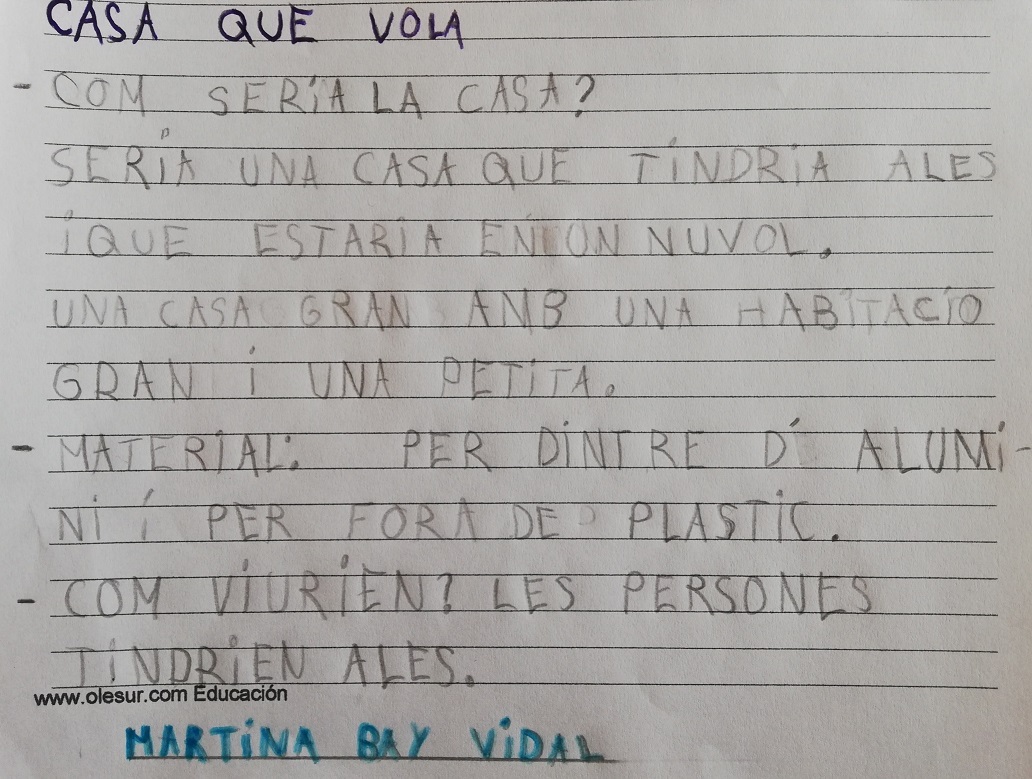 CASA QUE VOLA
- COM SERÍA LA CASA?
SERÍA UNA CASA QUE TINDRIA ALES
I QUE ESTARIA EN UN NUVOL.
UNA CASA GRAN AMB UNA HABITACIO
GRAN I UNA PETITA.
- MATERIAL: PER DINTRE D' ALUMI-
NI I PER FORA DE PLASTIC.
- COM VIURIEN? LES PERSONES
TINDRIEN ALES.
www.olesur.com Educación
MARTINA BAY VIDAL